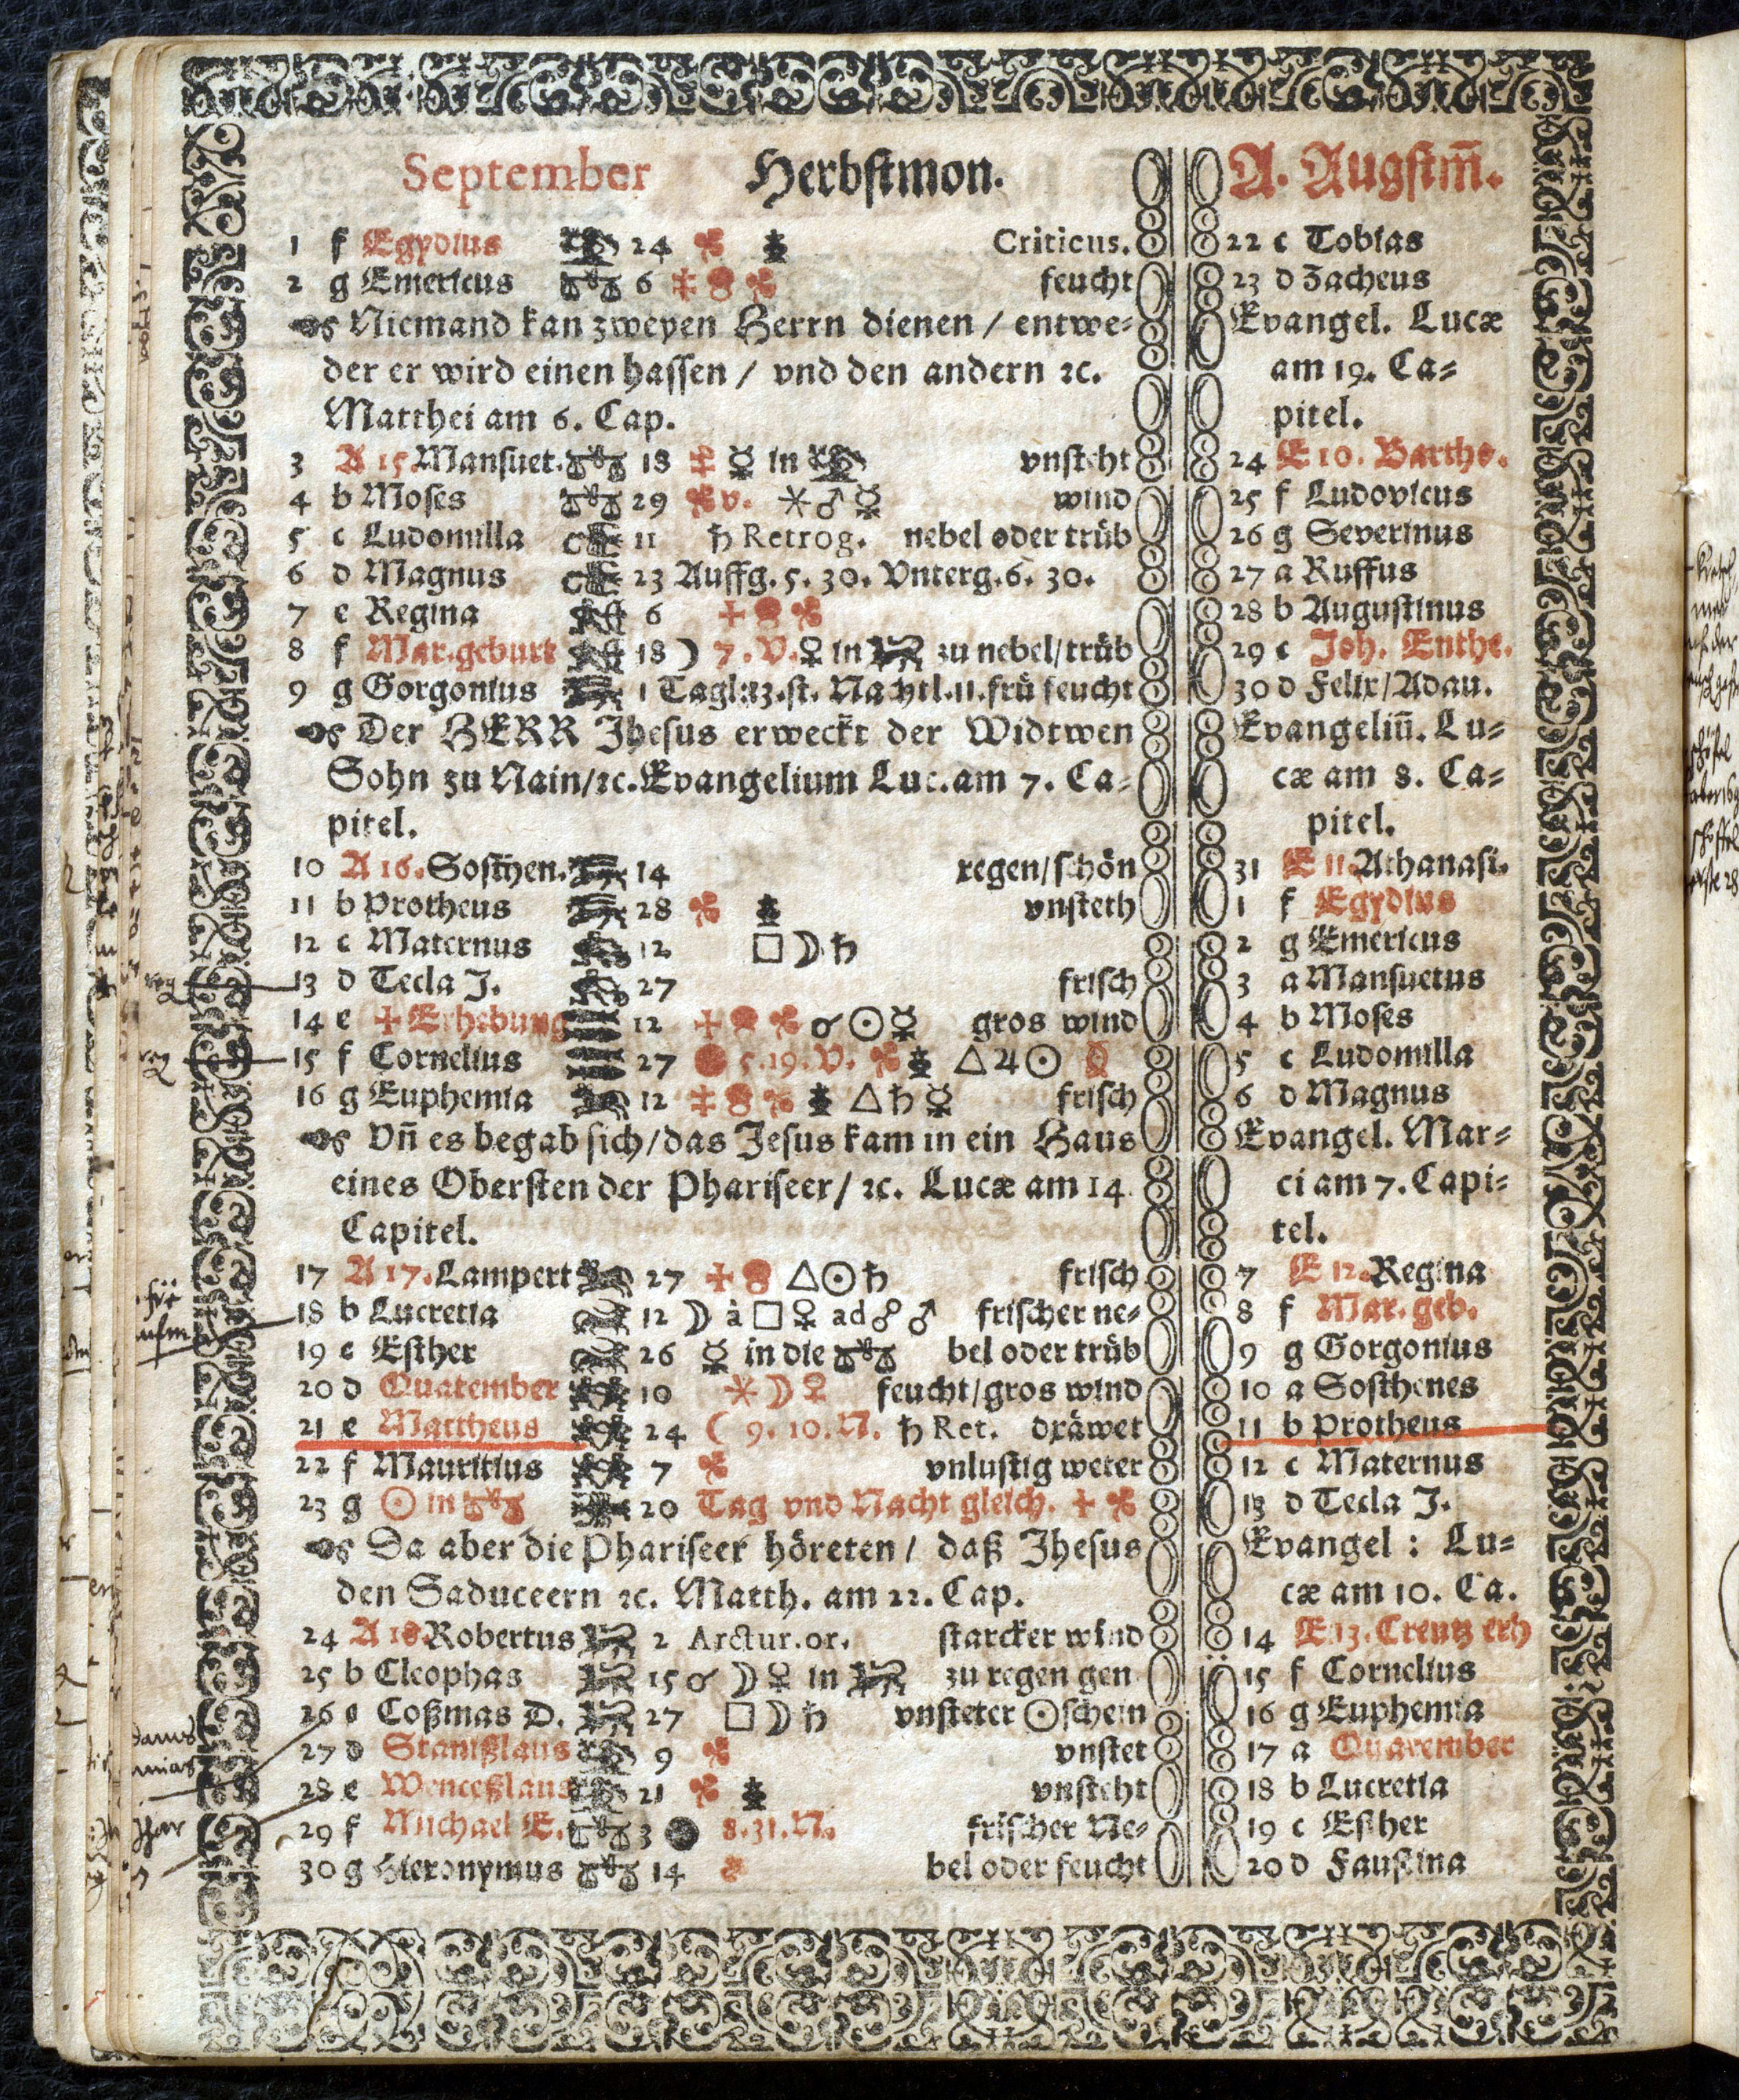 September Herbstmon.
1 f Egydius 24 Criticus.
2 g Emericus 6 feucht
Niemand kan zweyen Herrn dienen / entwe=
der er wird einen hassen / vnd den andern ꝛc.
Matthei am 6. Cap.
3 A 15. Mansuet. 18 ☿ in vnsteht
4 b Moses 29 v. ⚹ ♂ ☿ wind
5 c Ludomilla 11 ♄ Retrog. nebel oder trüb
6 d Magnus 23 Auffg. 5. 30. Vnterg. 6. 30.
7 e Regina 6
8 f Mar. geburt 18 ☽ 7. V. ♀ in zu nebel/trüb
9 g Gorgonius 1 Tagl: 13. st. Nachtl. 11. frü feucht
Der HERR Jhesus erweckt der Widtwen
Sohn zu Nain/ꝛc. Evangelium Luc. am 7. Ca=
pitel.
10 A 16. Sosthen. 14 regen/schön
11 b Protheus 28 vnsteth
12 c Maternus 12 □ ☽ ♄
13 d Tecla J. 27 frisch
14 e ✝ Erhebung 12 ☌ ☉ ☿ gros wind
15 f Cornelius 27 5. 19. V. △ ♃ ☉
16 g Euphemia 12 △ ♄ ☿ frisch
Vn̄ es begab sich/das Jesus kam in ein Haus
eines Obersten der Phariseer/ ꝛc. Lucæ am 14
Capitel.
17 A 17. Lampert 27 △ ☉ ♄ frisch
18 b Lucretia 12 ☽ à □ ♀ ad ☍ ♂ frischer ne=
19 c Esther 26 ☿ in die bel oder trüb
20 d Quatember 10 ⚹ ☽ ♀ feucht/gros wind
21 e Mattheus 24 ☾ 9. 10. N. ♄ Ret. dräwet
22 f Mauritius 7 vnlustig weter
23 g ☉ in 20 Tag vnd Nacht gleich.
Da aber die Phariseer höreten / daß Jhesus
den Saduceern ꝛc. Matth. am 22. Cap.
24 A 18. Robertus 2 Arctur. or. starcker wind
25 b Cleophas 15 ☌ ☽ ♀ in zu regen gen
26 c Coßmas D. 27 □ ☽ ♄ vnsteter ☉schein
27 d Stanißlaus 9 vnstet
28 e Wenceßlaus 21 vnsteht
29 f Michael E. 3 8. 31. N. frischer Ne=
30 g Hieronymus 14 bel oder feucht
A. Augstm̄.
22 c Tobias
23 d Zacheus
Evangel. Lucæ
am 19. Ca=
pitel.
24 E 10. Bartho.
25 f Ludovicus
26 g Severinus
27 a Ruffus
28 b Augustinus
29 c Joh. Enthe.
30 d Felix/Adau.
Evangeliū. Lu=
cæ am 8. Ca=
pitel.
31 E 11. Athanasi.
1 f Egydius
2 g Emericus
3 a Mansuetus
4 b Moses
5 c Ludomilla
6 d Magnus
Evangel. Mar=
ci am 7. Capi=
tel.
7 E 12. Regina
8 f Mar. geb.
9 g Gorgonius
10 a Sosthenes
11 b Protheus
12 c Maternus
13 d Tecla J.
Evangel : Lu=
cæ am 10. Ca.
14 E 13. Creutz erh
15 f Cornelius
16 g Euphemia
17 a Quatember
18 b Lucretia
19 c Esther
20 d Faustina